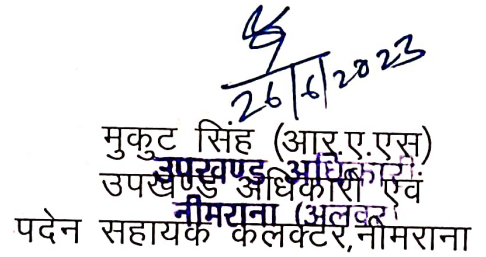 26/6/2023
मुकुट सिंह (आर.ए.एस)
उपखण्ड अधिकारी
उपखण्ड अधिकारी एवं
नीमराना (अलवर)
पदेन सहायक कलक्टर,नीमराना